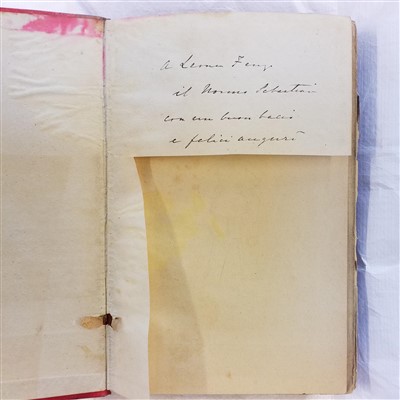 a
il Nonno Sebastian
con un buon bacio
e felici auguri